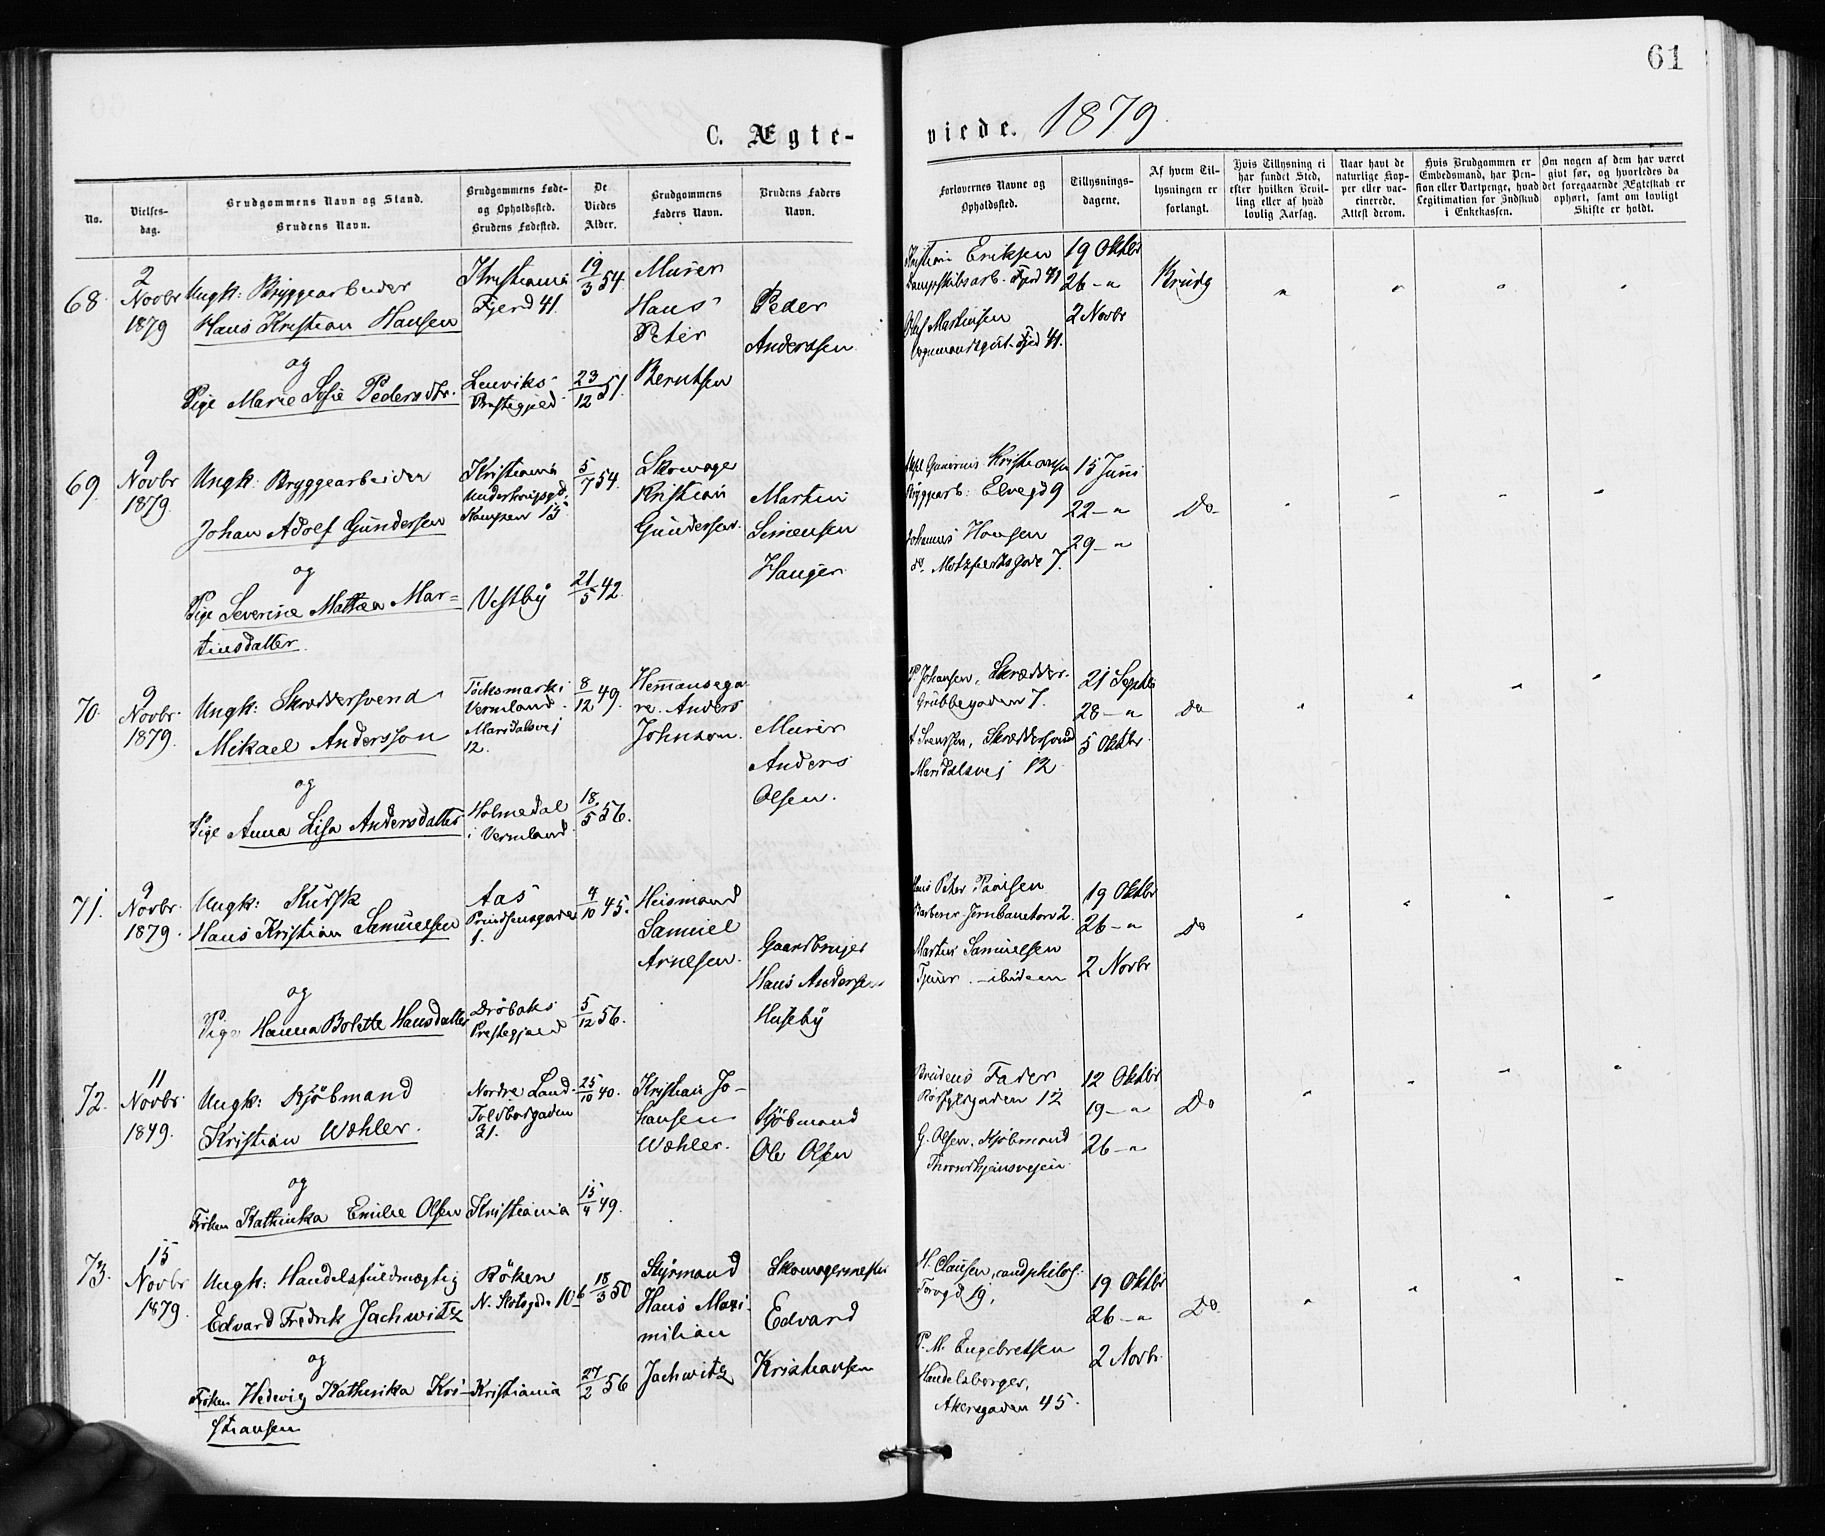 61
C. Ægte-
viede. 1879.
No.
Vielses-
dag.
Brudgommens Navn og Stand.
Brudens Navn.
Brudgommens Føde-
og Opholdssted.
Brudens Fødested.
De
Viedes
Alder.
Brudgommens
Faders Navn.
Brudens Faders
Navn.
Forlovernes Navne og
Opholdssted.
Tillysnings-
dagene.
Af hvem Til-
lysningen er
forlangt.
Hvis Tillysning ei
har fundet Sted,
efter hvilken Bevil-
ling eller af hvad
lovlig Aarsag.
Naar havt de
naturlige Kop-
per eller vac-
cinerede.
Attest derom.
Hvis Brudgommen er
Embedsmand, har Pen-
sion eller Vartpenge, hvad
Legitimation for Indskud
i Enkekassen.
Om nogen af dem har været
givt før, og hvorledes da
det foregaaende Ægteskab er
ophørt, samt om lovligt
Skifte er holdt.
68.
2
Novbr
1879
Ungk: Bryggearbeider
Hans Kristian Hansen
og
Pige Marie Sofie Pedersdtr.
Kristiania
Fjerd 41.
Lenviks
Prestegjeld
19/3 54.
23/12 51.
Murer
Hans
Peter
Berntsen
Peder
Anderssen
Kristian Eriksen
Dampskibsarb. Fjerd 41
Olaf Martinsen
Vognmandsgut. Fjerd 41.
19 Oktbr
26 - "
2 Novbr
Brudg
69.
9
Novbr
1879.
Ungk: Bryggearbeider
Johan Adolf Gundersen
og
Pige Severine Mathea Mar-
tinsdatter.
Kristiania
Kampen 15.
Vestby
5/7 54.
21/5 42.
Skomager
Kristian
Gundersen.
Martin
Simensen
Hauger
Gunerius Kristiansen
Bryggearb: Elvegd 9
Johannes Hansen
do. Motzfeldtsgade 7.
15 Juni
22 - "
29 - "
Do.
70.
9
Novbr.
1879.
Ungk: Skræddersvend
Mikael Andersson
og
Pige Anna Lisa Andersdatter
Töcksmark i
Vermland.
Maridalsvej
12.
Holmedal
i Vermland.
8/12 49.
18/5 56.
Hemmansega
re. Anders
Johnson.
Murer
Anders
Olsen.
P Johansen, Skrædder.
Grubbegaden 7.
A Svensen, Skræddersvend
Maridalsvej 12.
21 Septbr
28 - "
5 Oktbr.
Do
71.
9
Novbr.
1879.
Ungk: Kudsk
Hans Kristian Samuelsen
og
Pige Hanna Bolette Hansdatter
Aas
Prindsensgade
1.
Drøbaks
Prestegjeld
4/10 45.
5/12 56.
Heismand
Samuel
Arnesen.
Gaardbruger
Hans Andersen
Huseby
Hans Peter Paulsen
Barberer Jernbanetorv 2.
Martin Samuelsen
Tjener. - ibidem
19 Oktbr
26 - "
2 Novbr
Do
72.
11
Novbr.
1849.
Ungk: Kjøbmand
Kristian Wøhler.
og
Frøken Kathinka Emilie Olsen
Nordre Land.
Toldbodgaden
31.
Kristiania
25/10 40.
15/4 49.
Kristian Jo-
hansen
Wøhler.
Kjøbmand
Ole Olsen
Brudens Fader
12
G. Olsen, Kjøbmand
Throndhjemsvejen
12 Oktbr
19 - "
26 - "
Do
73.
15
Novbr
1879.
Ungk: Handelsfuldmægtig
Edvard Fredrik Jachwitz
og
Frøken Hedevig Kathinka Kri-
stiansen
Røken
N. Slotsgade 10 6
Kristiania
18/3 50
27/2 56
Styrmand
Hans Maxi-
milian
Jachwitz
Skomagermester
Edvard
Kristiansen
H. Clausen, cand philos.
Torvgd 19,
P. M. Engebretsen
Handelsborger,
Akersgaden 45.
19 Oktbr
26 - "
2 Novbr.
Do.